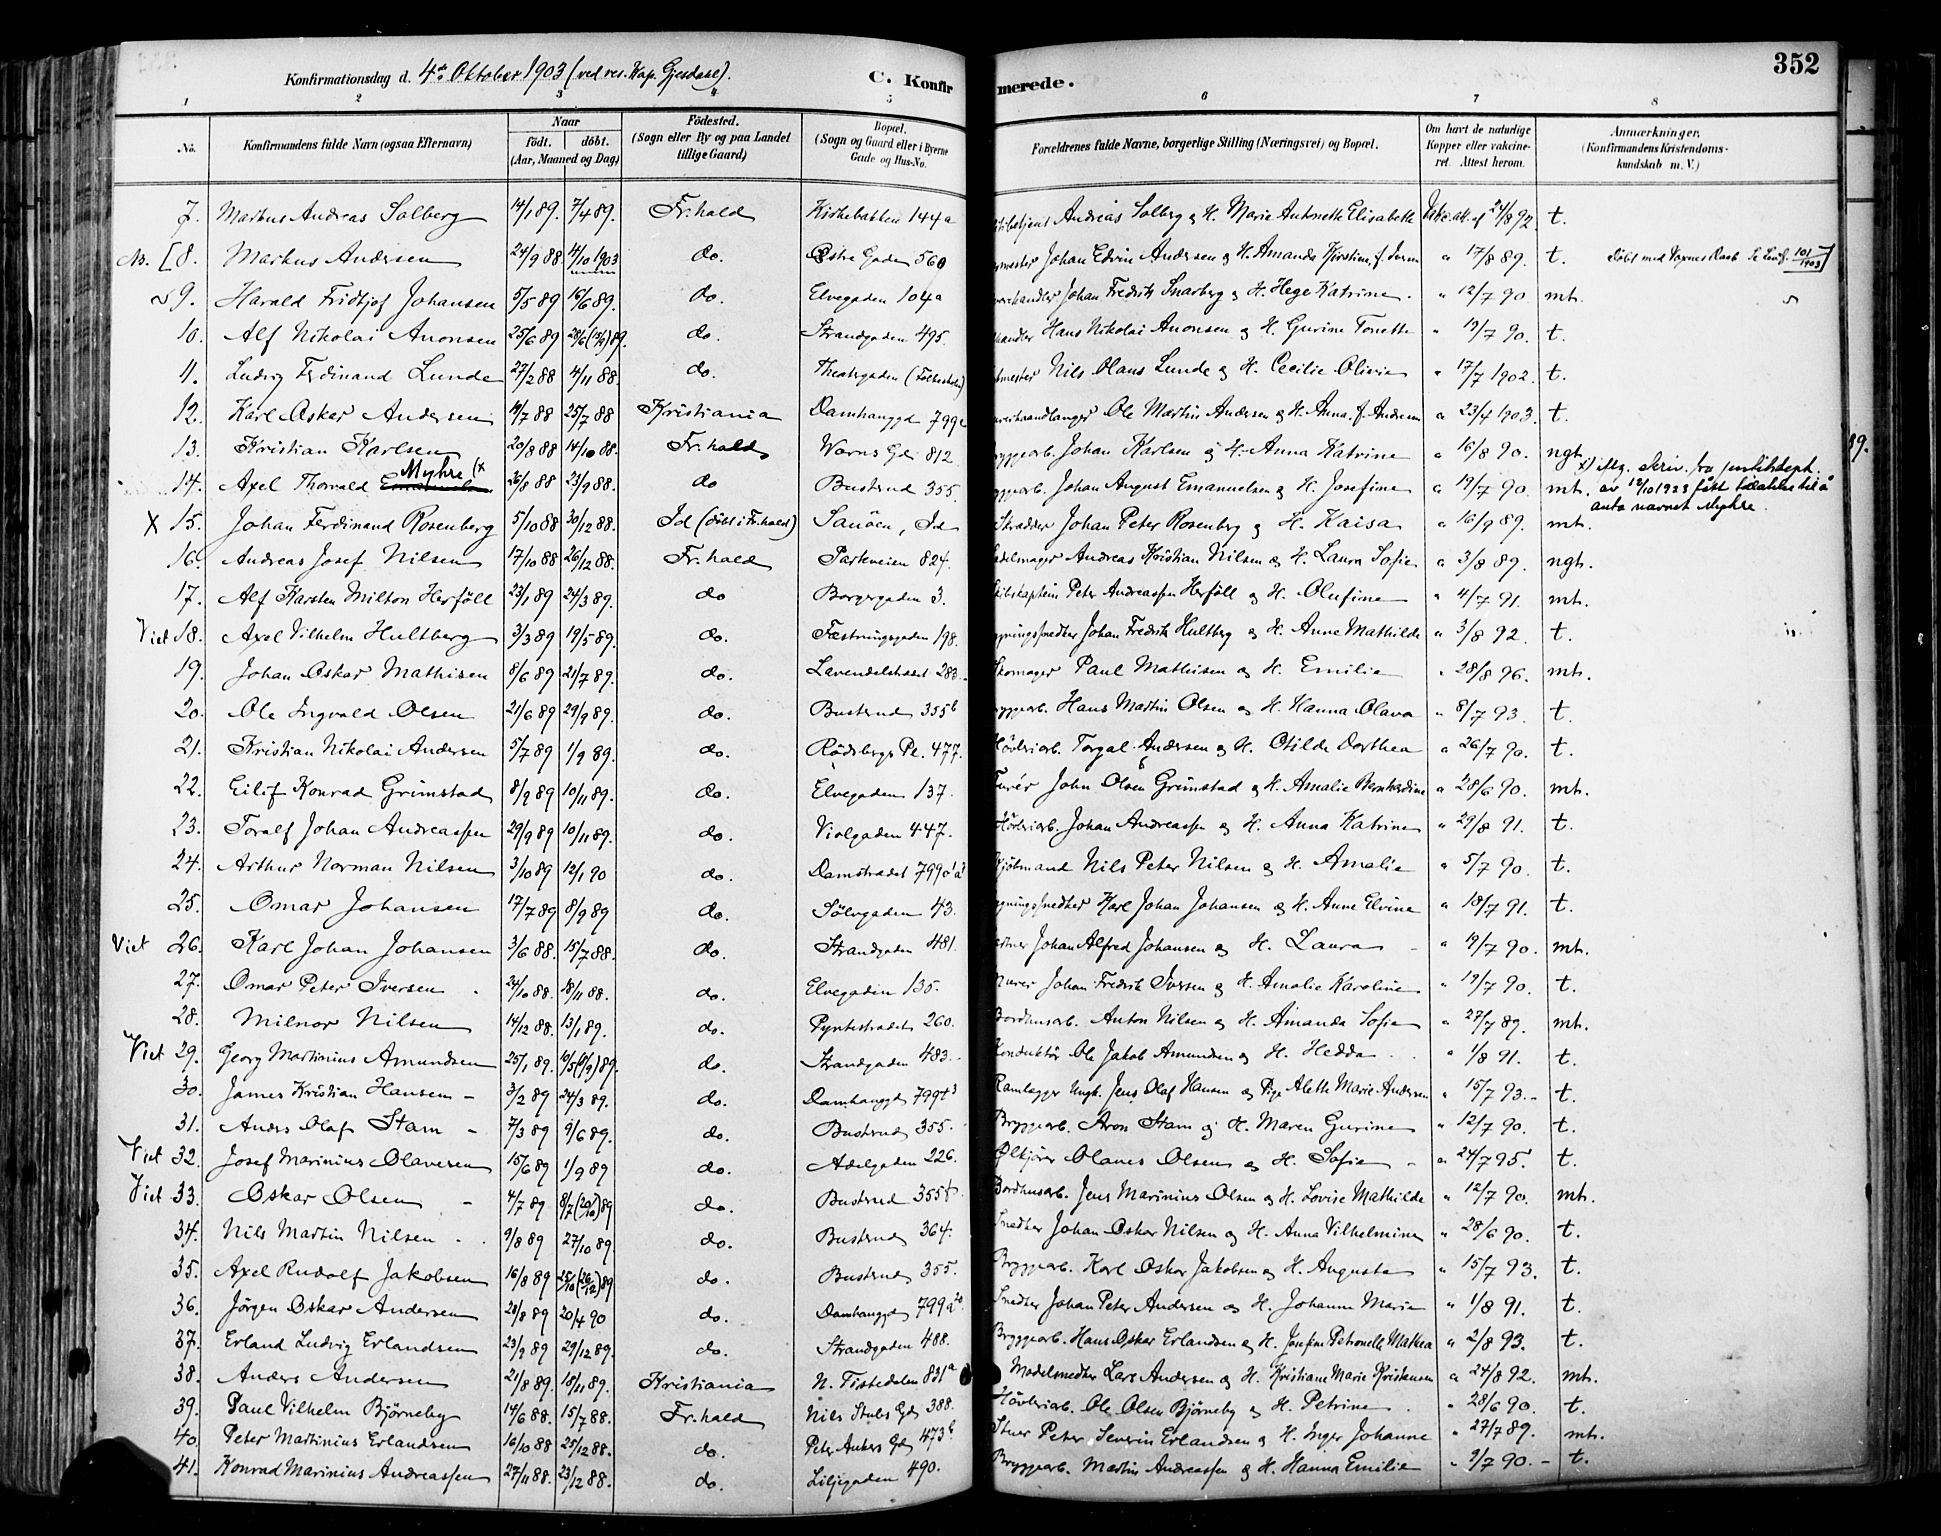 352
Konfirmationsdag d. 4de Oktober 1903 (ved res. Kap. Gjesdahl).
C. Konfirmerede.
1 2 3 4 5 6 7 8
No. Konfirmandens fulde Navn (ogsaa Efternavn) Naar født. døbt. (Aar, Maaned og Dag) Fødested. (Sogn eller By og paa Landet tillige Gaard) Bopæl. (Sogn og Gaard eller i Byerne Gade og Hus-No. Forældrenes fulde Navne, borgerlige Stilling (Næringsvei) og Bopæl. Om havt de naturlige Kopper eller vakcineret. Attest herom. Anmærkninger, (Konfirmandens Kristendomskundskab m. V.)
7. Markus Andreas Solberg 14/1 89. 7/4 89. Fr.hald Kirkebakken 144a Andreas Solberg og H. Marie Antonette Elisabeth Vakc. att. af 24/8 92. t.
No. [8. Markus Andersen 24/9 88 4/10 1903 do. Østre Gaden 560 Johan Edvin Andersen og H. Amanda Kirstine, f. Iversen " 17/8 89. t. Døbt med Voxnes Daab
9. Harald Fridtjof Johansen 5/5 89 16/6 89. do. Elvegaden 104a Johan Fredrik Snarberg og H. Hege Katrine. " 12/7 90. mt.
10. Alf Nikolai Aronsen 25/6 89 do. Strandgaden 495. Hans Nikolai Aronsen og H. Gurine Tonette " 19/7 90. t.
11. Ludvig Ferdinand Lunde 27/2 88 4/11 88. do. Theatergaden Nils Olaus Lunde og H. Cecilie Olivia " 17/7 1902. t.
12. Karl Oskar Andersen 19/7 88 25/7 88 Kristiania Damhauggd 799 Ole Martin Andersen og H. Anna, f. Andersen " 23/4 1903. t.
13. Kristian Karlsen 20/8 88 14/10 88. Fr.hald Worns Gd. 812. Johan Karlsen og H. Anna Katrine " 16/8 90. ngt.
14. Axel Thorvald Myhre (x 26/8 88 23/9 88. do Busterud 355. Johan August Emanuelsen og H. Josefine " 19/7 90. mt. x) iflg. skriv. fra justitsdept. av 12/10 1923 fått tilladelse til å anta navnet Myhre.
X 15. Johan Ferdinand Rosenberg 5/10 88 30/12 88. Id (døbt i Fr.hald) Sauöen, Id Skrædder Johan Peter Rosenberg og H. Kaisa " 16/9 89. mt.
16. Andreas Josef Nilsen 17/10 88 26/12 88. Fr.hald Parkveien 824. Andreas Kristian Nilsen og H. Laura Sofie " 3/8 89. ngt.
17. Alf Karsten Milton Herföll 23/1 89 24/3 89. do Borgergaden 3. Skibskaptein Peter Andreassen Herföll og H. Olufine " 4/7 91. mt.
Viet 18. Axel Vilhelm Hultberg 3/3 89 19/5 89. do. Fæstningsgaden 198. Bygningssnedker Johan Fredrik Hultberg og H. Anne Mathilde " 3/8 92. t.
19. Johan Oskar Mathisen 8/6 89 21/7 89. do. Lavendelstrædet 283. Skomager Paul Mathisen og H. Emilie " 28/8 96. mt.
20. Ole Ingvald Olsen 21/6 89 29/9 89. do. Busterud 355b Bryggearb. Hans Martin Olsen og H. Hanna Olava " 8/7 93. t.
21. Kristian Nikolai Andersen 5/7 89 1/9 89. do. Rödsbergs Pl. 477. Hövleriarb. Torgal Andersen og H. Otilde Dorthea " 26/7 90. t.
22. Eilif Konrad Grimstad 8/9 89 10/11 89. do. Elvegaden 137. Furér John Olsen Grimstad og H. Amalie Bernhardine " 28/6 90. mt.
23. Toralf Johan Andreassen 29/9 89 10/11 89. do. Violgaden 447. Hövleriarb. Johan Andreassen og H. Anna Katrine " 29/8 91. t.
24. Arthur Norman Nilsen 3/10 89 12/1 90 do. Damstrædet 799 Kjöbmand Nils Peter Nilsen og H. Amalie " 5/7 90. t.
25. Omar Johansen 17/7 89 8/9 89 do. Sölvgaden 43. Bygningssnedker Karl Johan Johansen og H. Anne Elvine " 18/7 91. t.
Viet 26. Karl Johan Johansen 3/6 88. 15/7 88. do. Strandgaden 481. Johan Alfred Johansen og H. Laura " 19/7 90. mt.
27. Omar Peter Iversen 24/10 88. 18/11 88. do. Elvegaden 135. Murer Johan Fredrik Iversen og H. Amalie Karoline " 19/7 90. t.
28. Milnor Nilsen 14/12 88. 13/1 89. do. Pyntestrædet 260. Bordhusarb. Anton Nilsen og H. Amanda Sofie " 27/7 89. mt.
Viet 29. Georg Martinius Amundsen 25/1 89. do. Strandgaden 483. Konduktör Ole Jakob Amundsen og H. Hedda " 1/8 91. t.
30. James Kristian Hansen 3/2 89 24/3 89. do. Damhauggd. 799 Ungk. Jens Olaf Hansen og Pige Alette Marie Andersen " 15/7 93. t.
31. Anders Olaf Stam 7/3 89 9/6 89. do. Busterud 355. Bryggearb. Aron Stam og H. Maren Gurine " 12/7 90. t.
Viet 32. Josef Marinius Olavesen 15/6 89 1/9 89 do. Adelgaden 226. Ölkjörer Olaves Olsen og H. Sofie " 24/7 95. t.
Viet 33. Oskar Olsen 4/7 89 do. Busterud 355 Bordhusarb. Jens Marinius Olsen og H. Lovise Mathilde " 12/7 90. mt.
34. Nils Martin Nilsen 9/8 89 27/10 89. do. Busterud 364. Snedker Johan Oskar Nilsen og H. Anna Vilhelmine " 28/6 90. t.
35. Axel Rudolf Jakobsen 16/8 89 do. Busterud 355. Bryggearb. Karl Oskar Jakobsen og H. Augusta " 15/7 93. t.
36. Jörgen Oskar Andersen 28/8 89 20/4 90 do. Damhauggd 799 Snedker Johan Peter Andersen og H. Johanne Marie " 1/8 91. t.
37. Erland Ludvig Erlandsen 23/9 89 29/12 89. do. Strandgaden 488. Bryggearb. Hans Oskar Erlandsen og H. Josefine Petronelle Mathea " 2/8 93. t.
38. Anders Andersen 21/8 89. 18/11 89. Kristiania N. Tistedalen 831a Modelsnedker Lars Andersen og H. Kristiane Marie Kristensen " 24/8 92. mt.
39. Paul Vilhelm Björneby 14/6 88. 15/7 88. Fr.hald Nils Stubs Gd. 388. Hövleriarb. Ole Olsen Björneby og H. Petrine " 28/6 90. t.
40. Peter Martinius Erlandsen 16/10 88 25/12 88. do. Peter Ankers Gd. 473b Stuer Peter Severin Erlandsen og H. Inger Johanne " 27/7 89. mt.
41. Konrad Marinius Andreassen 27/11 88. 23/12 88. do. Liljegaden 490. Bryggearb. Martin Andreassen og H. Hanna Emilie " 9/7 90. t.
89.